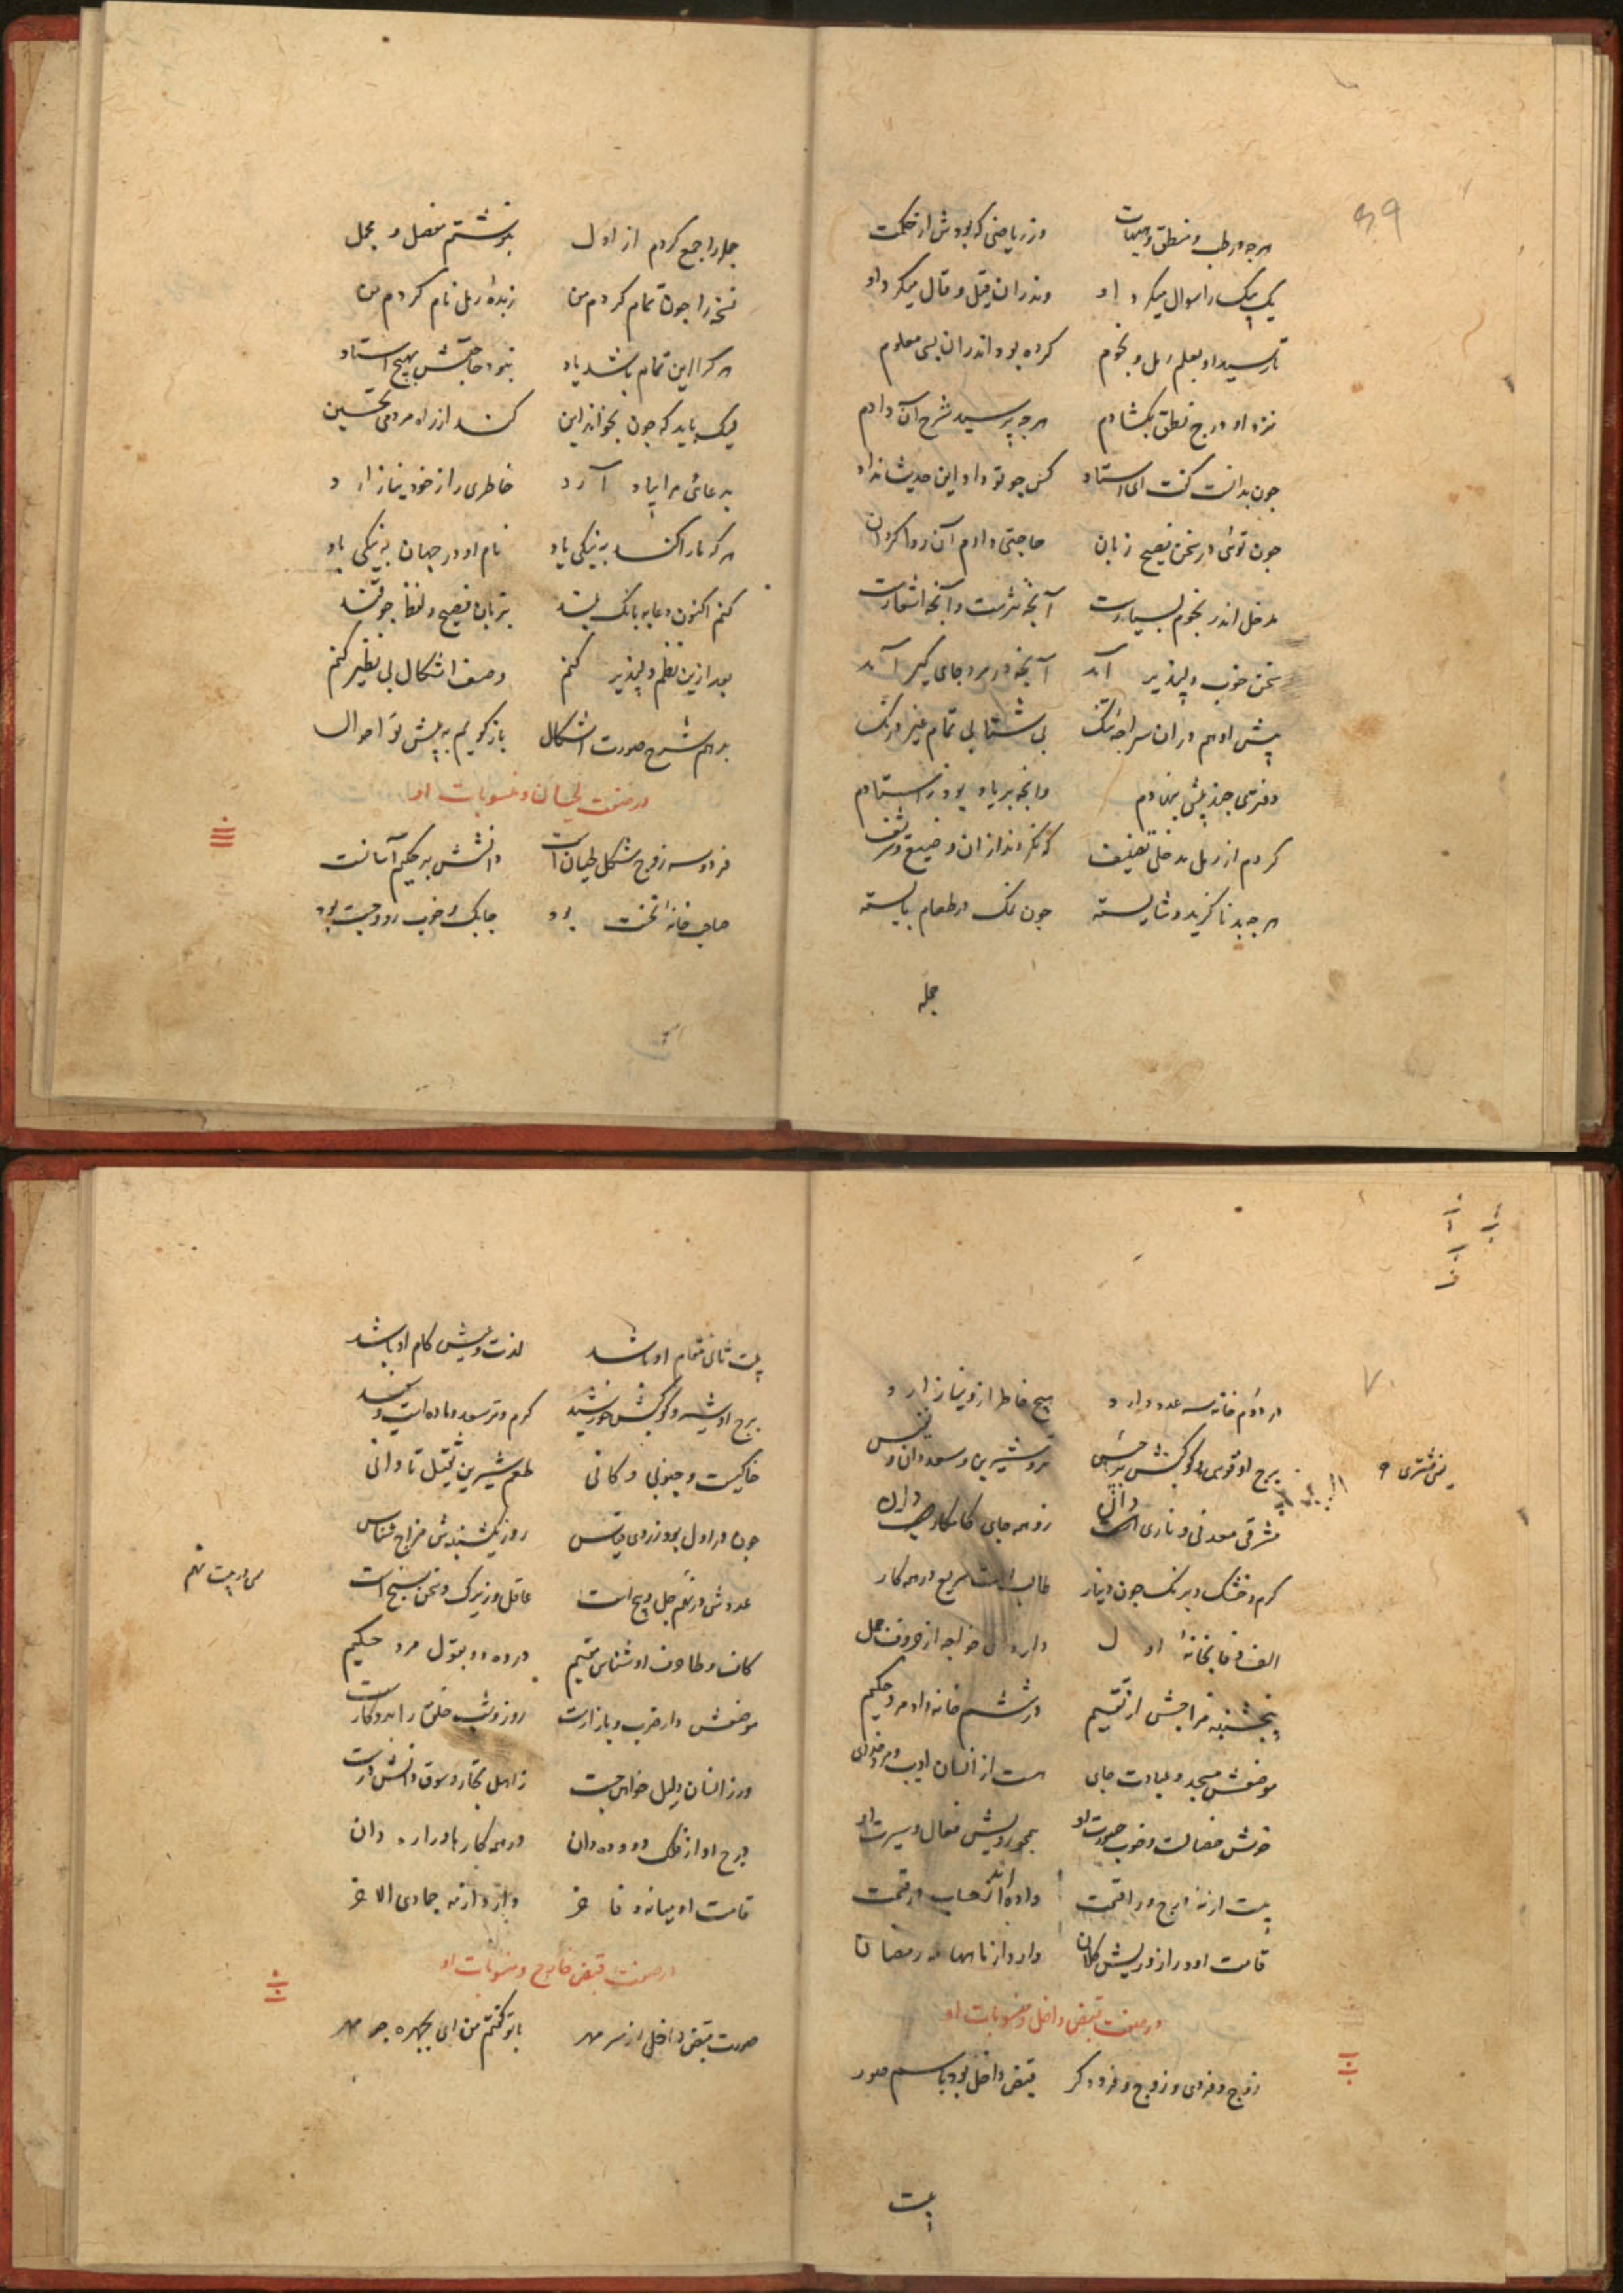 ۶۹
هرچه در طب و منطق و هیات وز ریاضی که بودش از حکمت
یک بیک را سوال میکرد او وندران قیل و قال میکرد او
تا رسید او بعلم رمل و نجوم کرده بود اندران بسی معلوم
نزد او درج نطق بکشادم هرچه پرسید شرح آن دادم
چون بدانست کفت ای استاد کس چو تو داد این حدیث نداد
چون توئی در سخن فصیح زبان حاجتی دارم آن روا کردان
مدخل اندر نجوم بسیارست آنچه نثرست وآنچه اشعارست
سخن خوب دلپذیر آمد آنچه در برد جای کیر آمد
پیش او هم دران سراچه تنک بی شتابی تمام غیر درنک
دفتری چند پیش بنهادم وانچه بر یاد بود ز استادم
کردم از رمل مدخلی تصنیف که نکردند ازان وضیع و شریف
هرچه بد ناکزیر و شایسته چون نمک در طعام بایسته
جمله
جمله را جمع کردم از اول بنوشتم مفصل و مجمل
نسخه را چون تمام کردم من زبدهٔ رمل نام کردم من
هرکرا این تمام باشد یاد نبود حاجتش بهیچ استاد
لیک باید که چون بخواند این کند از راه مردمی تحسین
بدعائی مرا بیاد آرد خاطری را ز خود نیازارد
هرکه ما را کند به نیکی یاد نام او در جهان به نیکی باد
کنم اکنون دعا به بانک بلند بزبان فصیح و لفظ چو قند
بعد ازین نظم دلپذیر کنم وصف اشکال بی نظیر کنم
بدهم شرح صورت اشکال باز کویم به پیش تو احوال
در صفت لحیان و منسوبات او
فرد و سه زوج شکل لحیان است دانشش بر حکیم آسانست
صاحب خانه نخست بود چابک و خوب رو و چست بود
۷۰
در دوم خانه سه عدد دارد هیچ خاطر ازو نیازارد
برج او قوس و کوکبش برجیس تر و شیرین و سعد دان و نفیس
یعنی مشتری
مشرقی معدنی و ناری دان زو همه جای کامکاری دان
کرم و خشک و برنک چون دینار طالب است سریع در همه کار
الف و فا بخانهٔ اول دارد ای خواجه از حروف جمل
پنجشنبه مزاجش از تقسیم در ششم خانه داد مرد حکیم
موضعش مسجد و عبادت جای هست از انسان ادیب و مرد خدای
خوش خصالست و خوب صورت او همچو رویش فعال و سیرت او
بیست از نه درج ورا قمت داده اند از حساب در قمت
قامت او دراز و ریش کلان دارد از نامها مه رمضان
در صفت قبض داخل و منسوبات او
زوج و فردی و زوج و فرد دکر قبض داخل بود باسم صور
بیت
بیت ثانی مقام او باشد لذت و عیش کام او باشد
برج او شیر و کوکبش خورشید کرم و تر سعد و ماده است و سفید
خاکیست و جنوبی و کانی طعم شیرین ثقیل تا دانی
چون در اول بود ز روی قیاس روز یکشنبه ش مزاج شناس
عددش در نهم چل و پنج است عاقل و زیرک و سخن سنج است
کاف و طا حرف او شناس مقیم در ده و دو بقول مرد حکیم
موضعش دار ضرب و بازارست روز و شب خلق را بدو کارست
ور ز انسان دلیل خواهی جست ز اهل تجار و سوق دانش درست
درج او از فلک دو و ده دان در همه کارها در اره دان
قامت او میانه و فاخر دارد از مه جمادی الاخر
در صفت قبض خارج و منسوبات او
صورت قبض داخل از سر مهر با تو کفتم من ای بچهره چو مهر